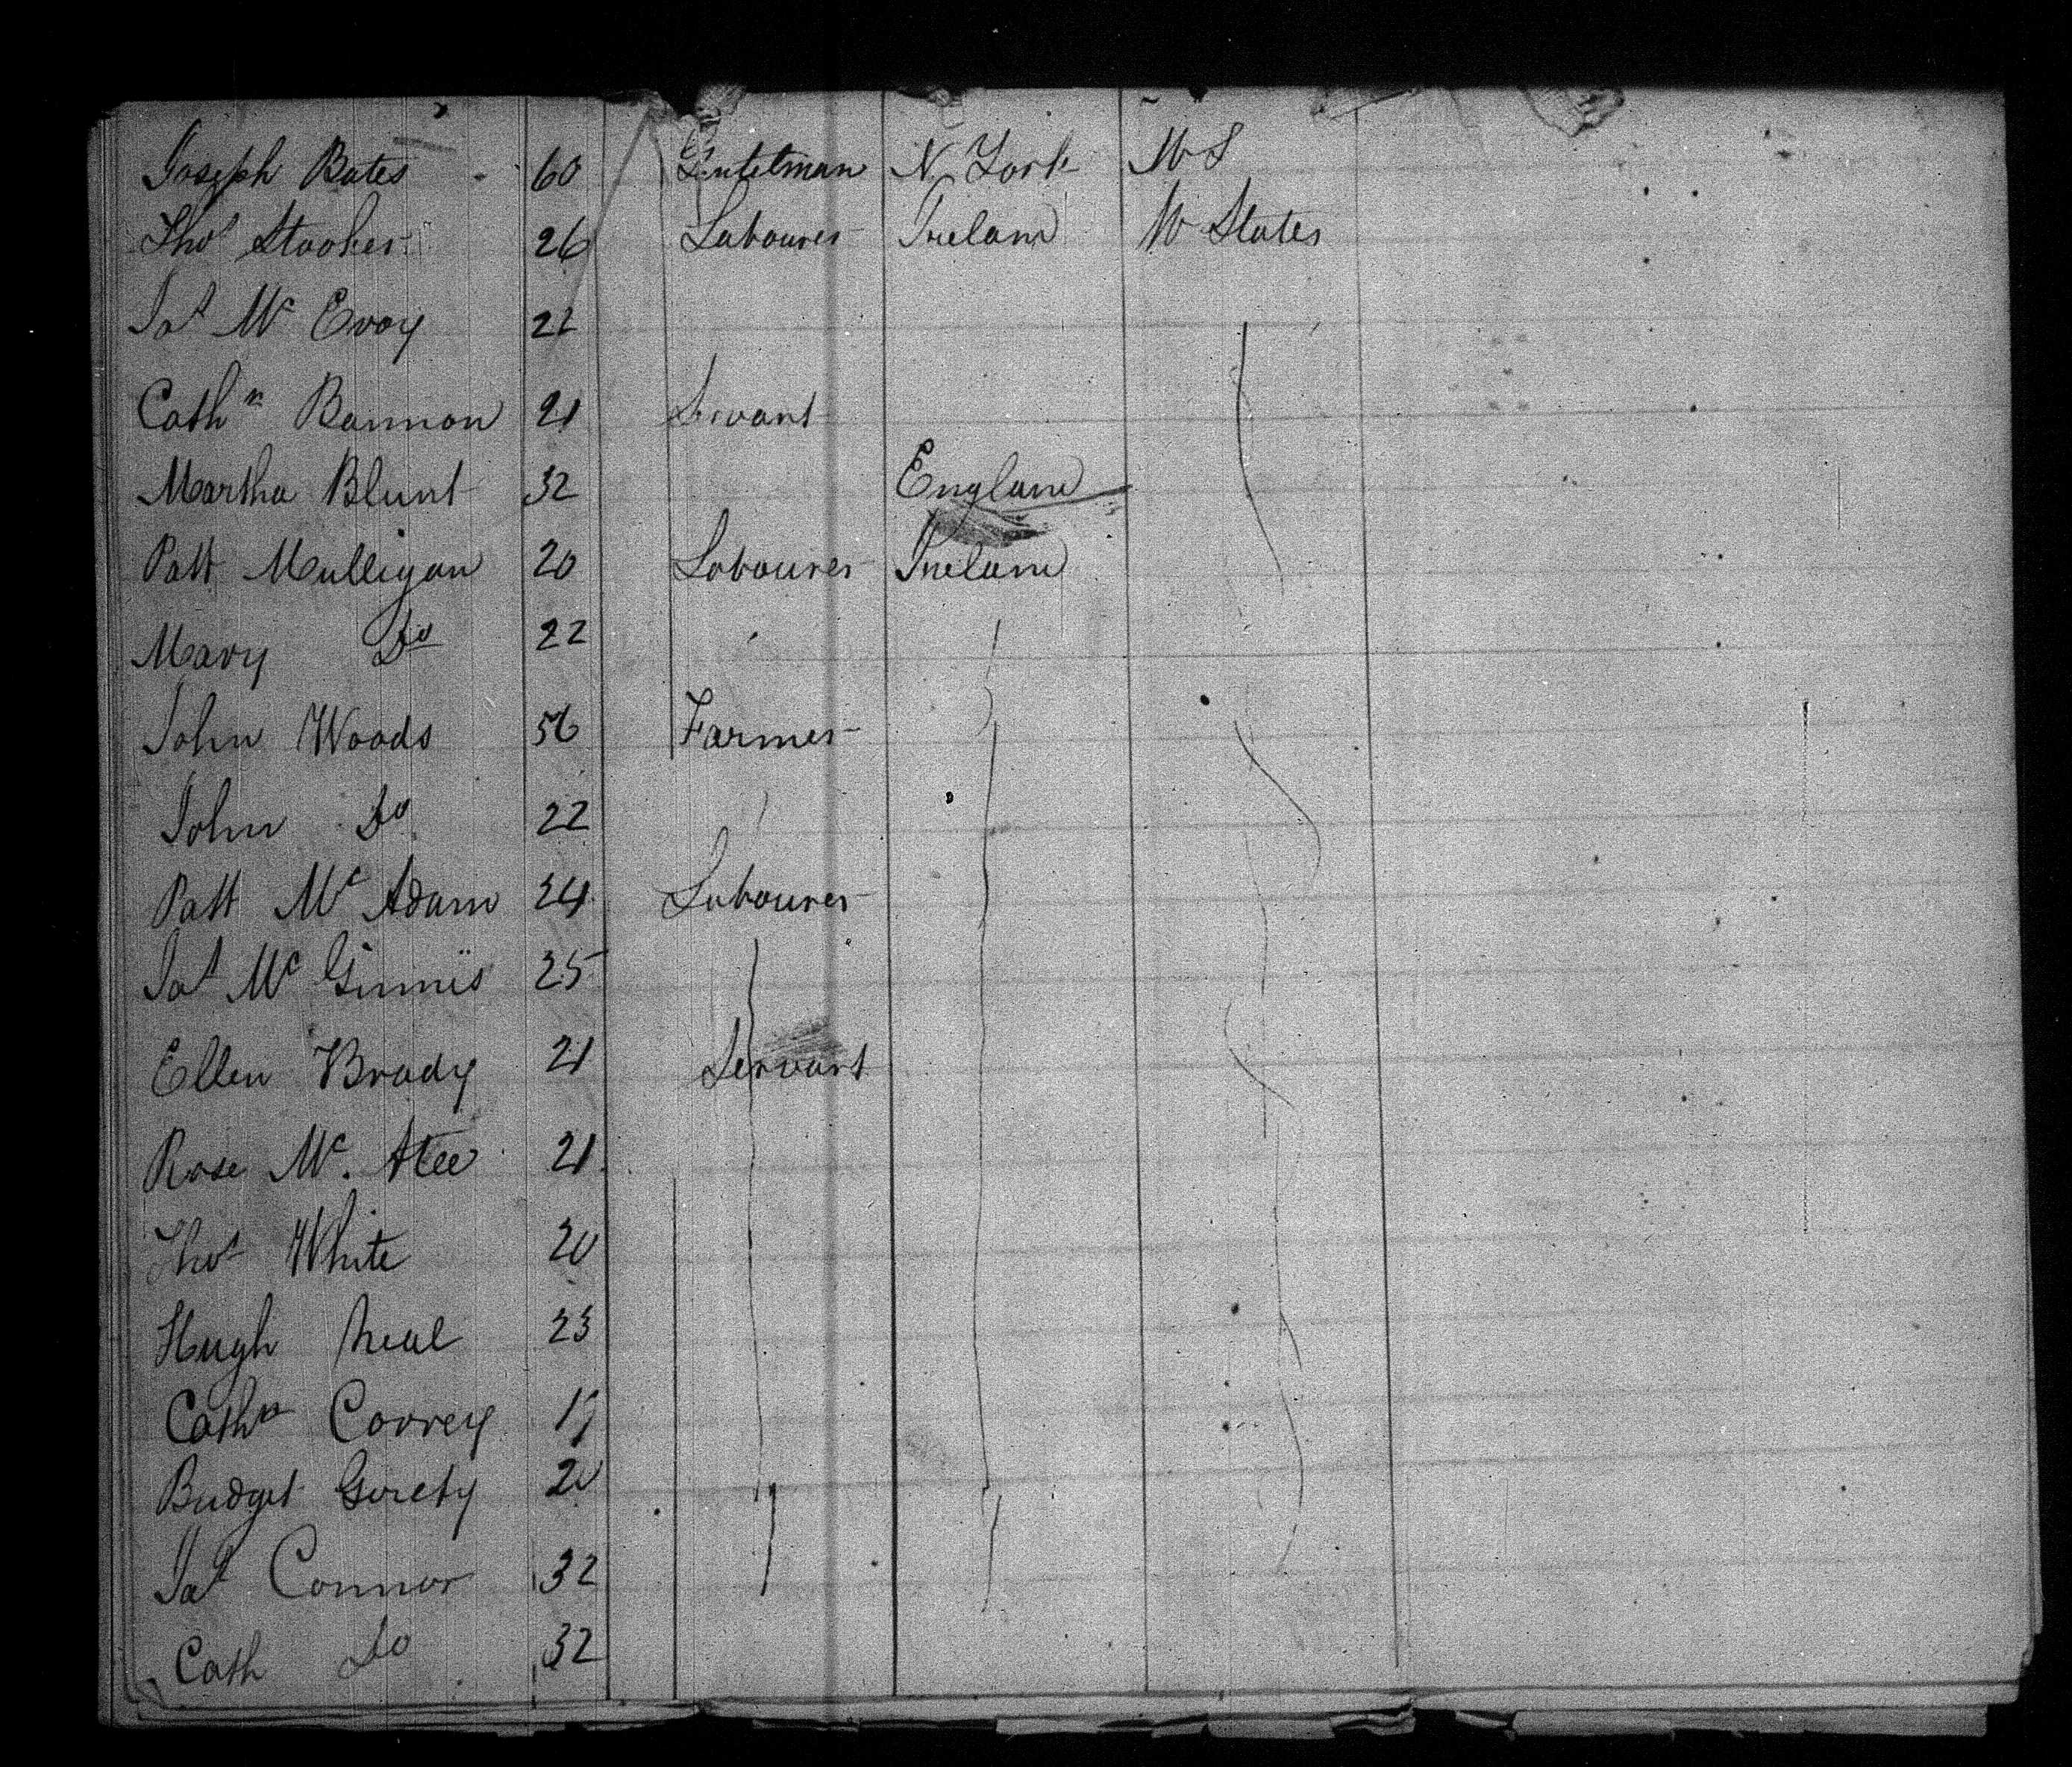 Joseph Bates 60 Gentelman N. York U S
Thos Stookes 26 Labourer Ireland U States
Jas Mc Evoy 22
Cathn Bannon 21 Servant
Martha Blunt 32 England
Patt Mulligan 20 Labourer Ireland
Mary Do 22
John Woods 56 Farmer
John Do 22
Patt Mc Adam 24 Labourer
Jas Mc Ginnis 25
Ellen Brady 21 Servant
Rose Mc. Atee 21
Thos White 20
Hugh Neal 23
Cathn Correy 19
Bridget 20
Jas Connor 32
Cath Do 32